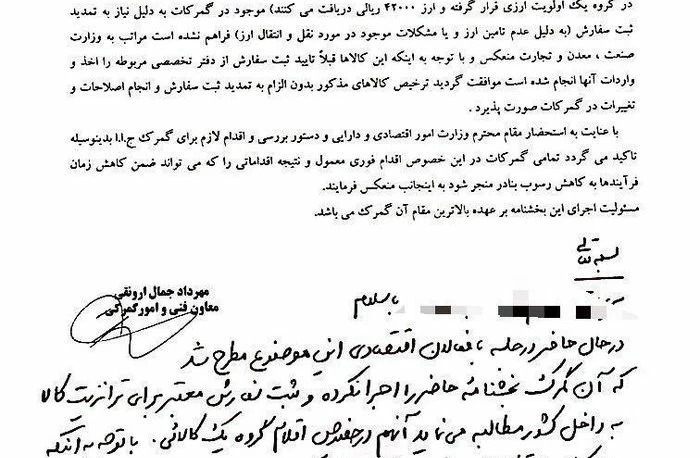 در گروه یک اولویت ارزی قرار گرفته و ارز ۴۲۰۰۰ ریالی دریافت می کنند) موجود در گمرکات به دلیل نیاز به تمدید
ثبت سفارش (به دلیل عدم تامین ارز و یا مشکلات موجود در مورد نقل و انتقال ارز) فراهم نشده است مراتب به وزارت
صنعت ، معدن و تجارت منعکس و با توجه به اینکه این کالاها قبلاً تایید ثبت سفارش از دفتر تخصصی مربوطه را اخذ و
واردات آنها انجام شده است موافقت گردید ترخیص کالاهای مذکور بدون الزام به تمدید ثبت سفارش و انجام اصلاحات و
تغییرات در گمرکات صورت پذیرد .
با عنایت به استحضار مقام محترم وزارت امور اقتصادی و دارایی و دستور بررسی و اقدام لازم برای گمرک ج.ا.ا بدینوسیله
تاکید می گردد تمامی گمرکات در این خصوص اقدام فوری معمول و نتیجه اقداماتی را که می تواند ضمن کاهش زمان
فرآیندها به کاهش رسوب بنادر منجر شود به اینجانب منعکس فرمایند.
مسئولیت اجرای این بخشنامه بر عهده بالاترین مقام آن گمرک می باشد.
بسمه تعالی
مهرداد جمال ارونقی
معاون فنی و امور گمرکی
با سلام
در حال حاضر در جلسه با فعالان اقتصادی این موضوع مطرح شد
که آن گمرک بخشنامه حاضر را اجرا نکرده و ثبت سفارش معتبر برای ترانزیت کالا
به داخل کشور مطالبه می نماید آنهم در خصوص اقلام گروه یک کالائی . با توجه به اینکه